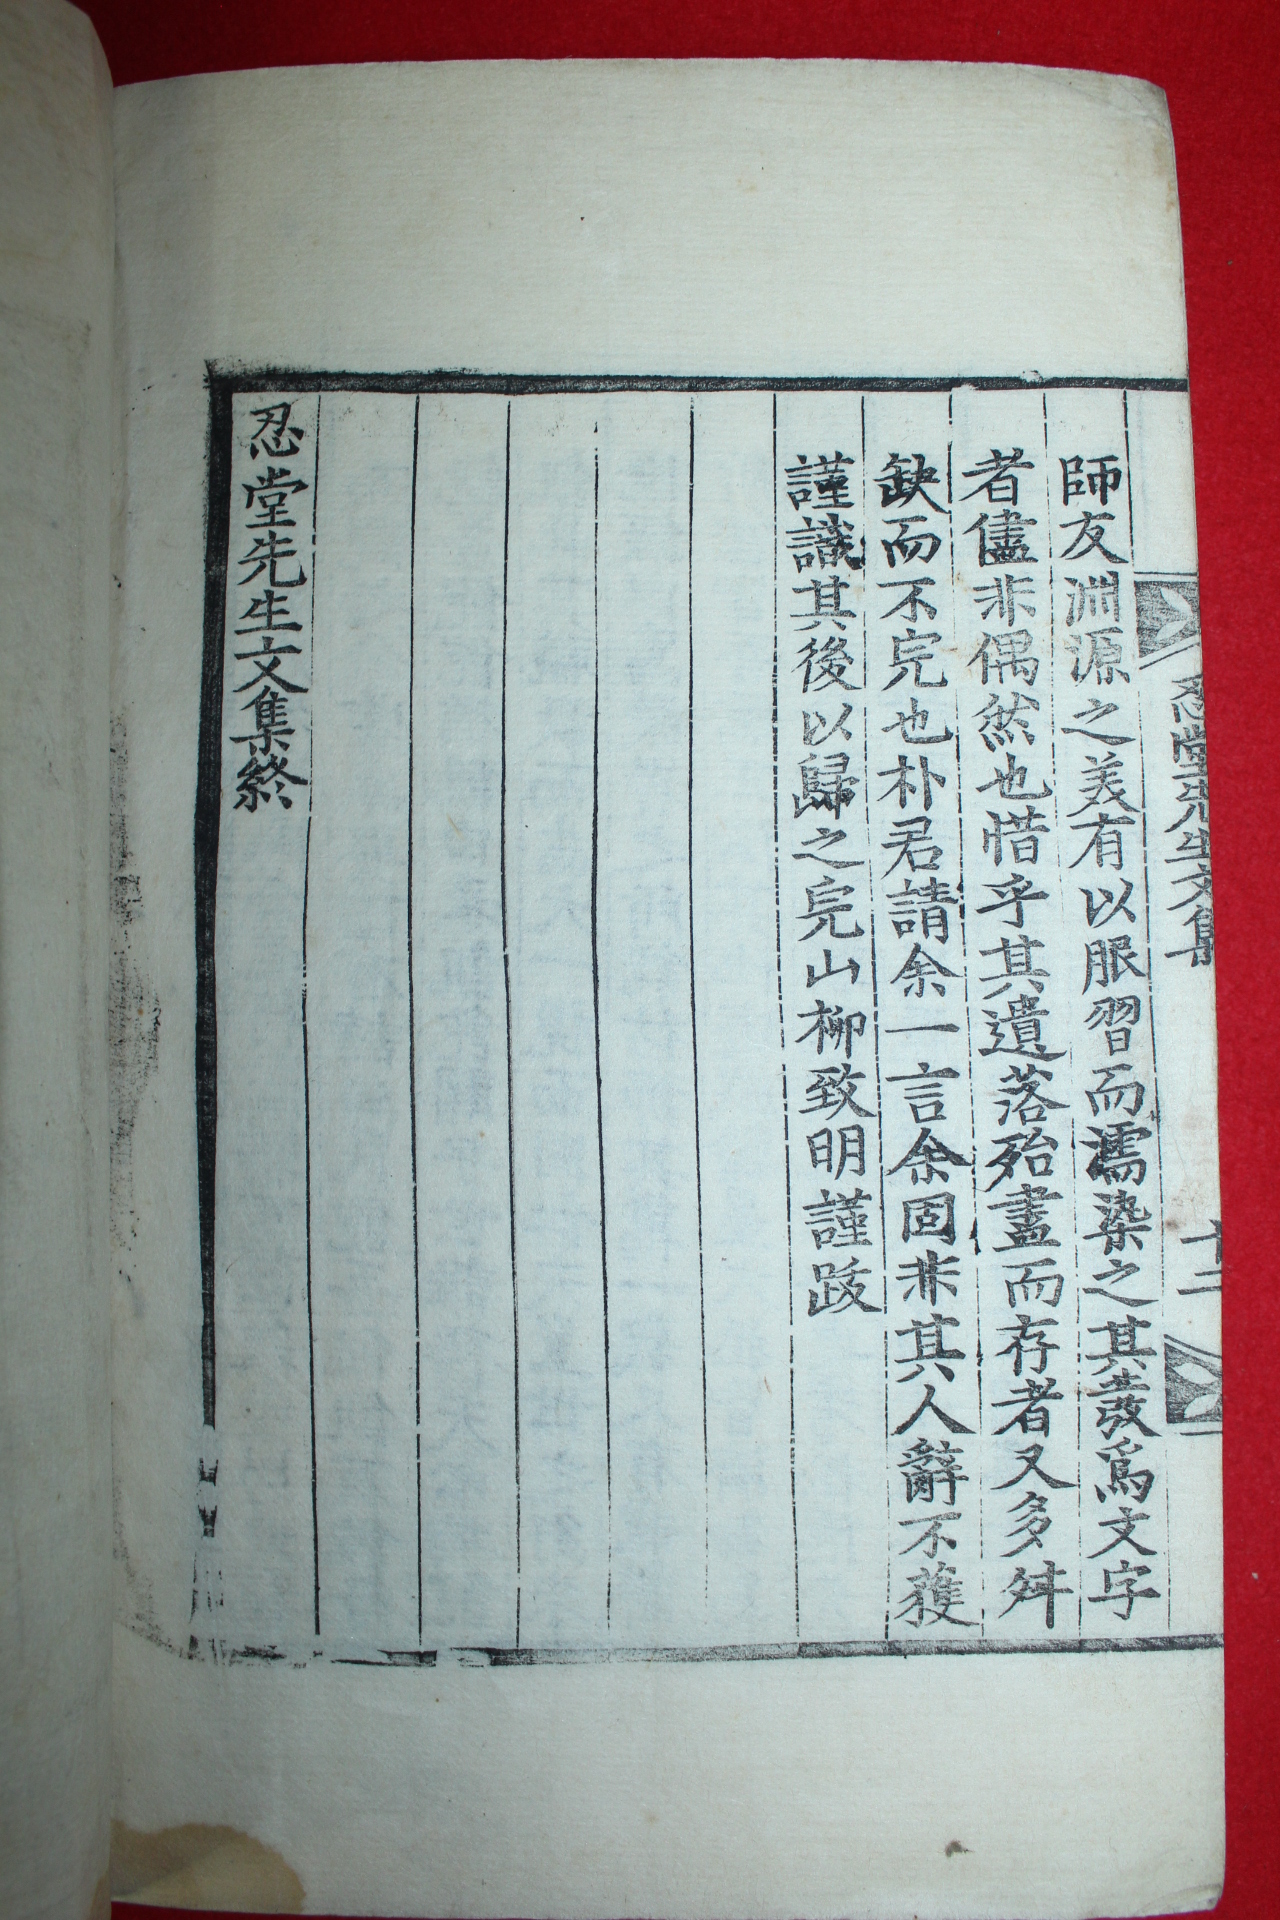 師友淵源之美有以服習而濡染之其發爲文字
者儘非偶然也惜乎其遺落殆盡而存者又多舛
缺而不完也朴君請余一言余固非其人辭不獲
謹識其後以歸之完山柳致明謹跋
忍堂先生文集終
忍堂先生文集
十二